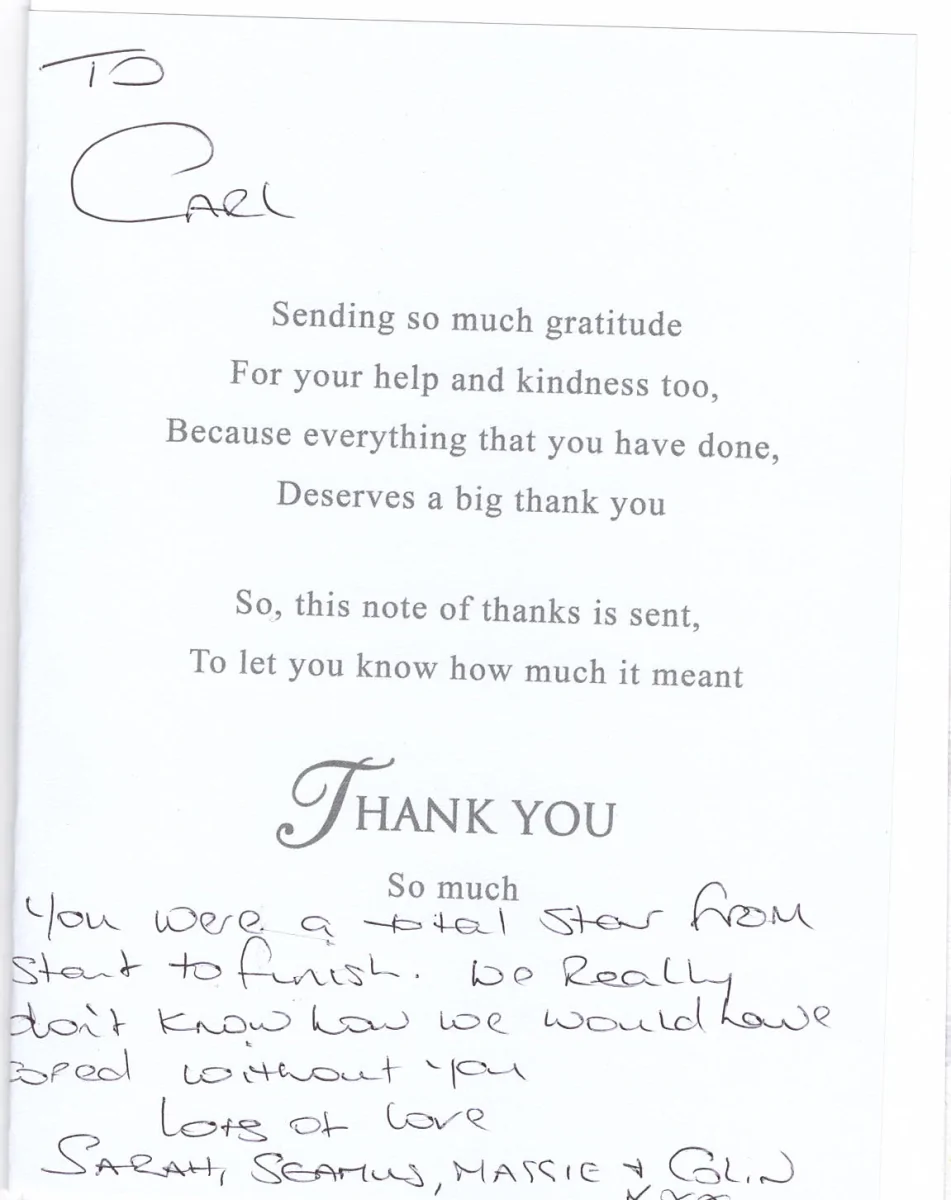 TO
CARL
Sending so much gratitude
For your help and kindness too,
Because everything that you have done,
Deserves a big thank you
So, this note of thanks is sent,
To let you know how much it meant
THANK YOU
So much
You were a total star from
start to finish. We Really
don't know how we would have
coped without you
Lots of love
SARAH, SEAMUS, MASSIE + COLIN